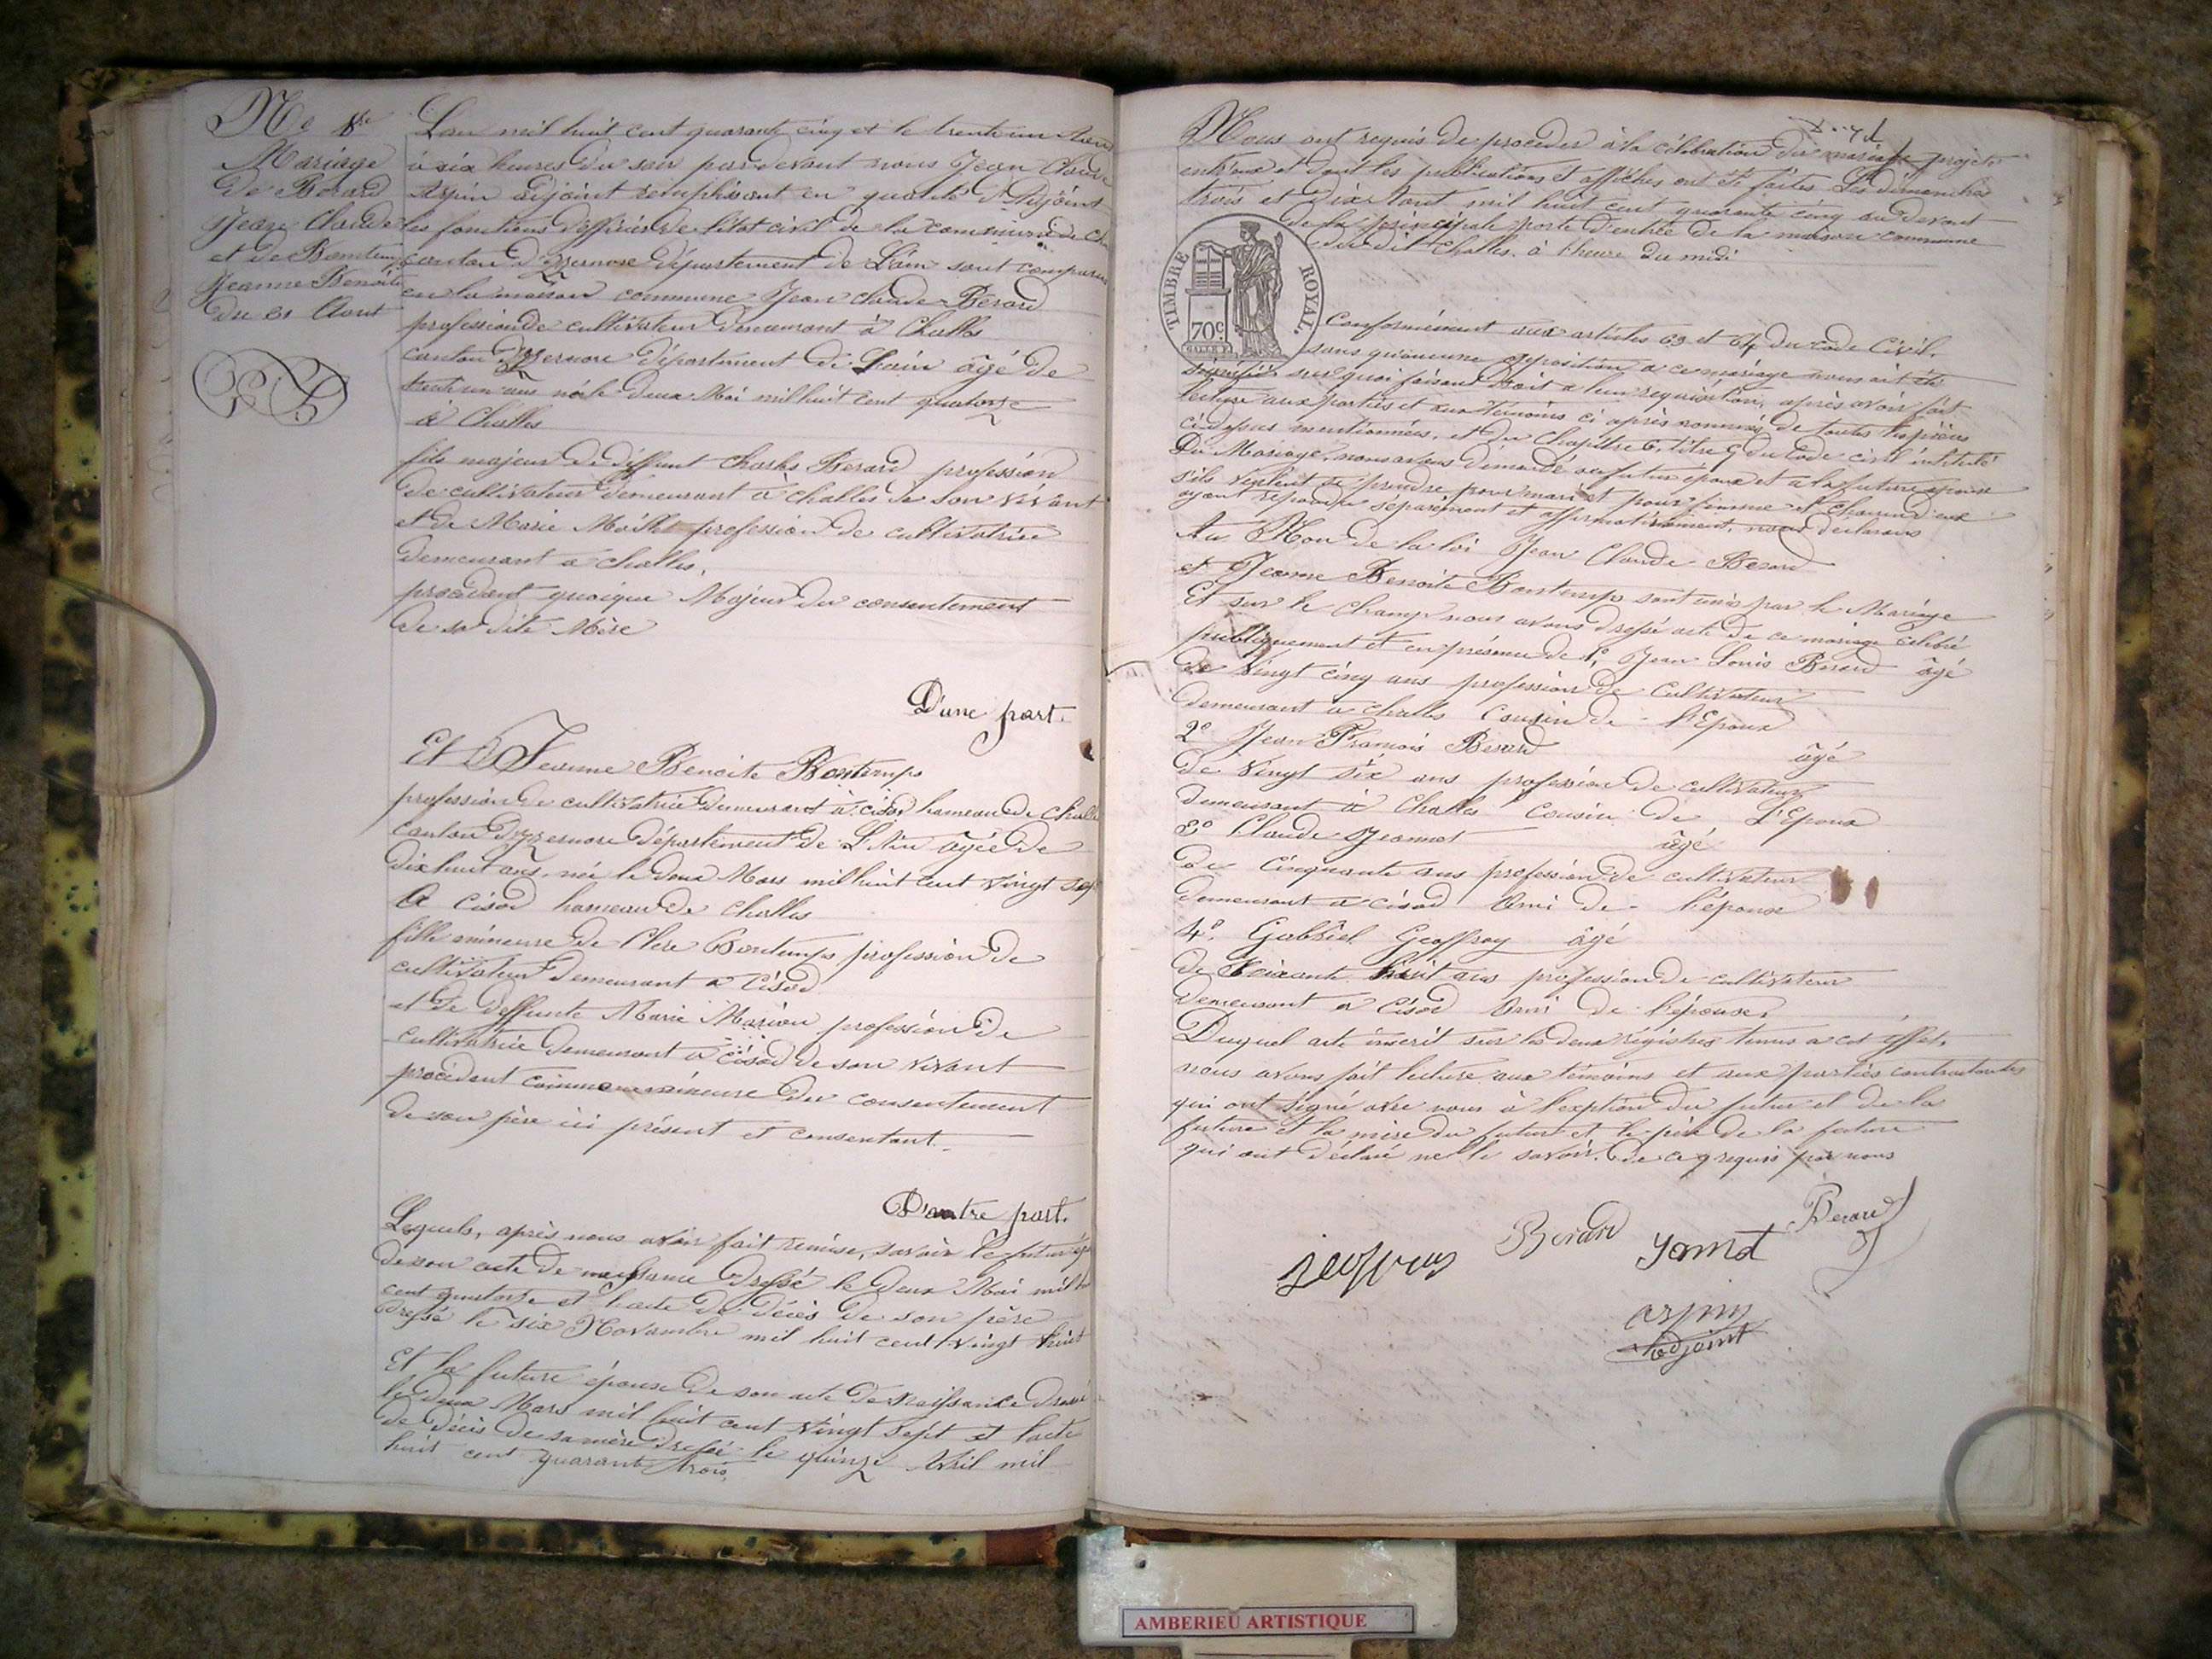 Mariage
de Berard
Jean Claude
et de Bontemp
Jeanne Benoite
du 31 Aout
L'an mil huit cent quarante cinq et le trente un Aout
à six heures du soir pardevant nous Jean Claude
Arpin adjoint remplissant en qualité d'Adjoint
les fonctions d'officier de l'état civil de la commune de
canton d'Izernore département de L'ain sont comparus
en la maison commune Jean Claude Berard
profession de cultivateur demeurant à Challes
canton d'Izernore département de L'ain âgé de
trente un ans né le deux Mai mil huit cent quatorze
à Challes
fils majeur de deffunt Charles Berard profession
de cultivateur demeurant à Challes de son vivant
et de Marie profession de cultivatrice
demeurant a Challes,
procédant quoique Majeur du consentement
de sa dite Mère
D'une part.
Et Jeanne Benoite Bontemps
profession de cultivatrice demeurant à Cisod hameau de Challes
canton d'Izernore département de L'Ain âgée de
dix huit ans, née le deux Mars mil huit cent vingt sept
A Cisod hameau de Challes
fille mineure de Clere Bontemps profession de
cultivateur demeurant a Cisod
et de deffunte Marie Marion profession de
cultivatrice demeurant a Cisod de son vivant
procédant comme mineure du consentement
de son père ici présent et consentant.
D'autre part.
Lesquels, après nous avoir fait remise, savoir le futur
de son acte de naissance dressé le deux Mai mil
cent quatorze et l'acte de décès de son père
dressé le six Novembre mil huit cent vingt huit
Et la future épouse de son acte de naissance dressé
le deux Mars mil huit cent vingt sept et l'acte
de décès de sa mère dressé le quinze Avril mil
huit cent quarante trois,
Nous ont requis de procéder à la célébration du mariage projeté
entr'eux et dont les publications et affiches ont été faites les dimanches
trois et dix Aout mil huit cent quarante cinq au devant
de la principale porte d'entrée de la maison commune
du dit Challes. à l'heure du midi
TIMBRE ROYAL.
70c
Conformément aux articles 63 et 64 du Code Civil.
sans qu'aucune opposition a ce mariage nous ait été
signifié sur quoi faisant droit a leur requisition, après avoir fait
lecture aux parties et aux témoins ci après nommés, de toutes les pièces
ci dessus mentionnées, et du Chapitre 6, titre 5 du Code civil intitulé
Du Mariage, nous avons demandé au futur époux et a la future épouse
s'ils veulent se prendre pour mari et pour femme et chacun d'eux
ayant répondu séparément et affirmativement, nous déclarons
Au Nom de la loi Jean Claude Berard
et Jeanne Benoite Bontemps sont unis par le Mariage
Et sur le Champ nous avons dressé acte de ce mariage célébré
publiquement et en présence de 1o. Jean Louis Berard âgé
de vingt cinq ans profession de Cultivateur
demeurant a Challes Cousin de l'Epoux
2o Jean François Berard âgé
de vingt six ans profession de cultivateur
demeurant à Challes cousin de L'Epoux
3o Claude Jeannot âgé
de Cinquante ans profession de cultivateur
demeurant a Cisod Ami de l'épouse
4o. Gabriel Geoffray âgé
de Soixante huit ans profession de cultivateur
demeurant a Cisod Ami de l'épouse.
Duquel acte inscrit sur les deux régistres tenus a cet effet.
nous avons fait lecture aux témoins et aux parties contractantes
qui ont signé avec nous à l'exption du futur et de la
future et la mère du futur et le père de la future
qui ont déclaré ne le savoir. de ce requis par nous
Berard
Berard
Jomot
arpin
adjoint
AMBERIEU ARTISTIQUE